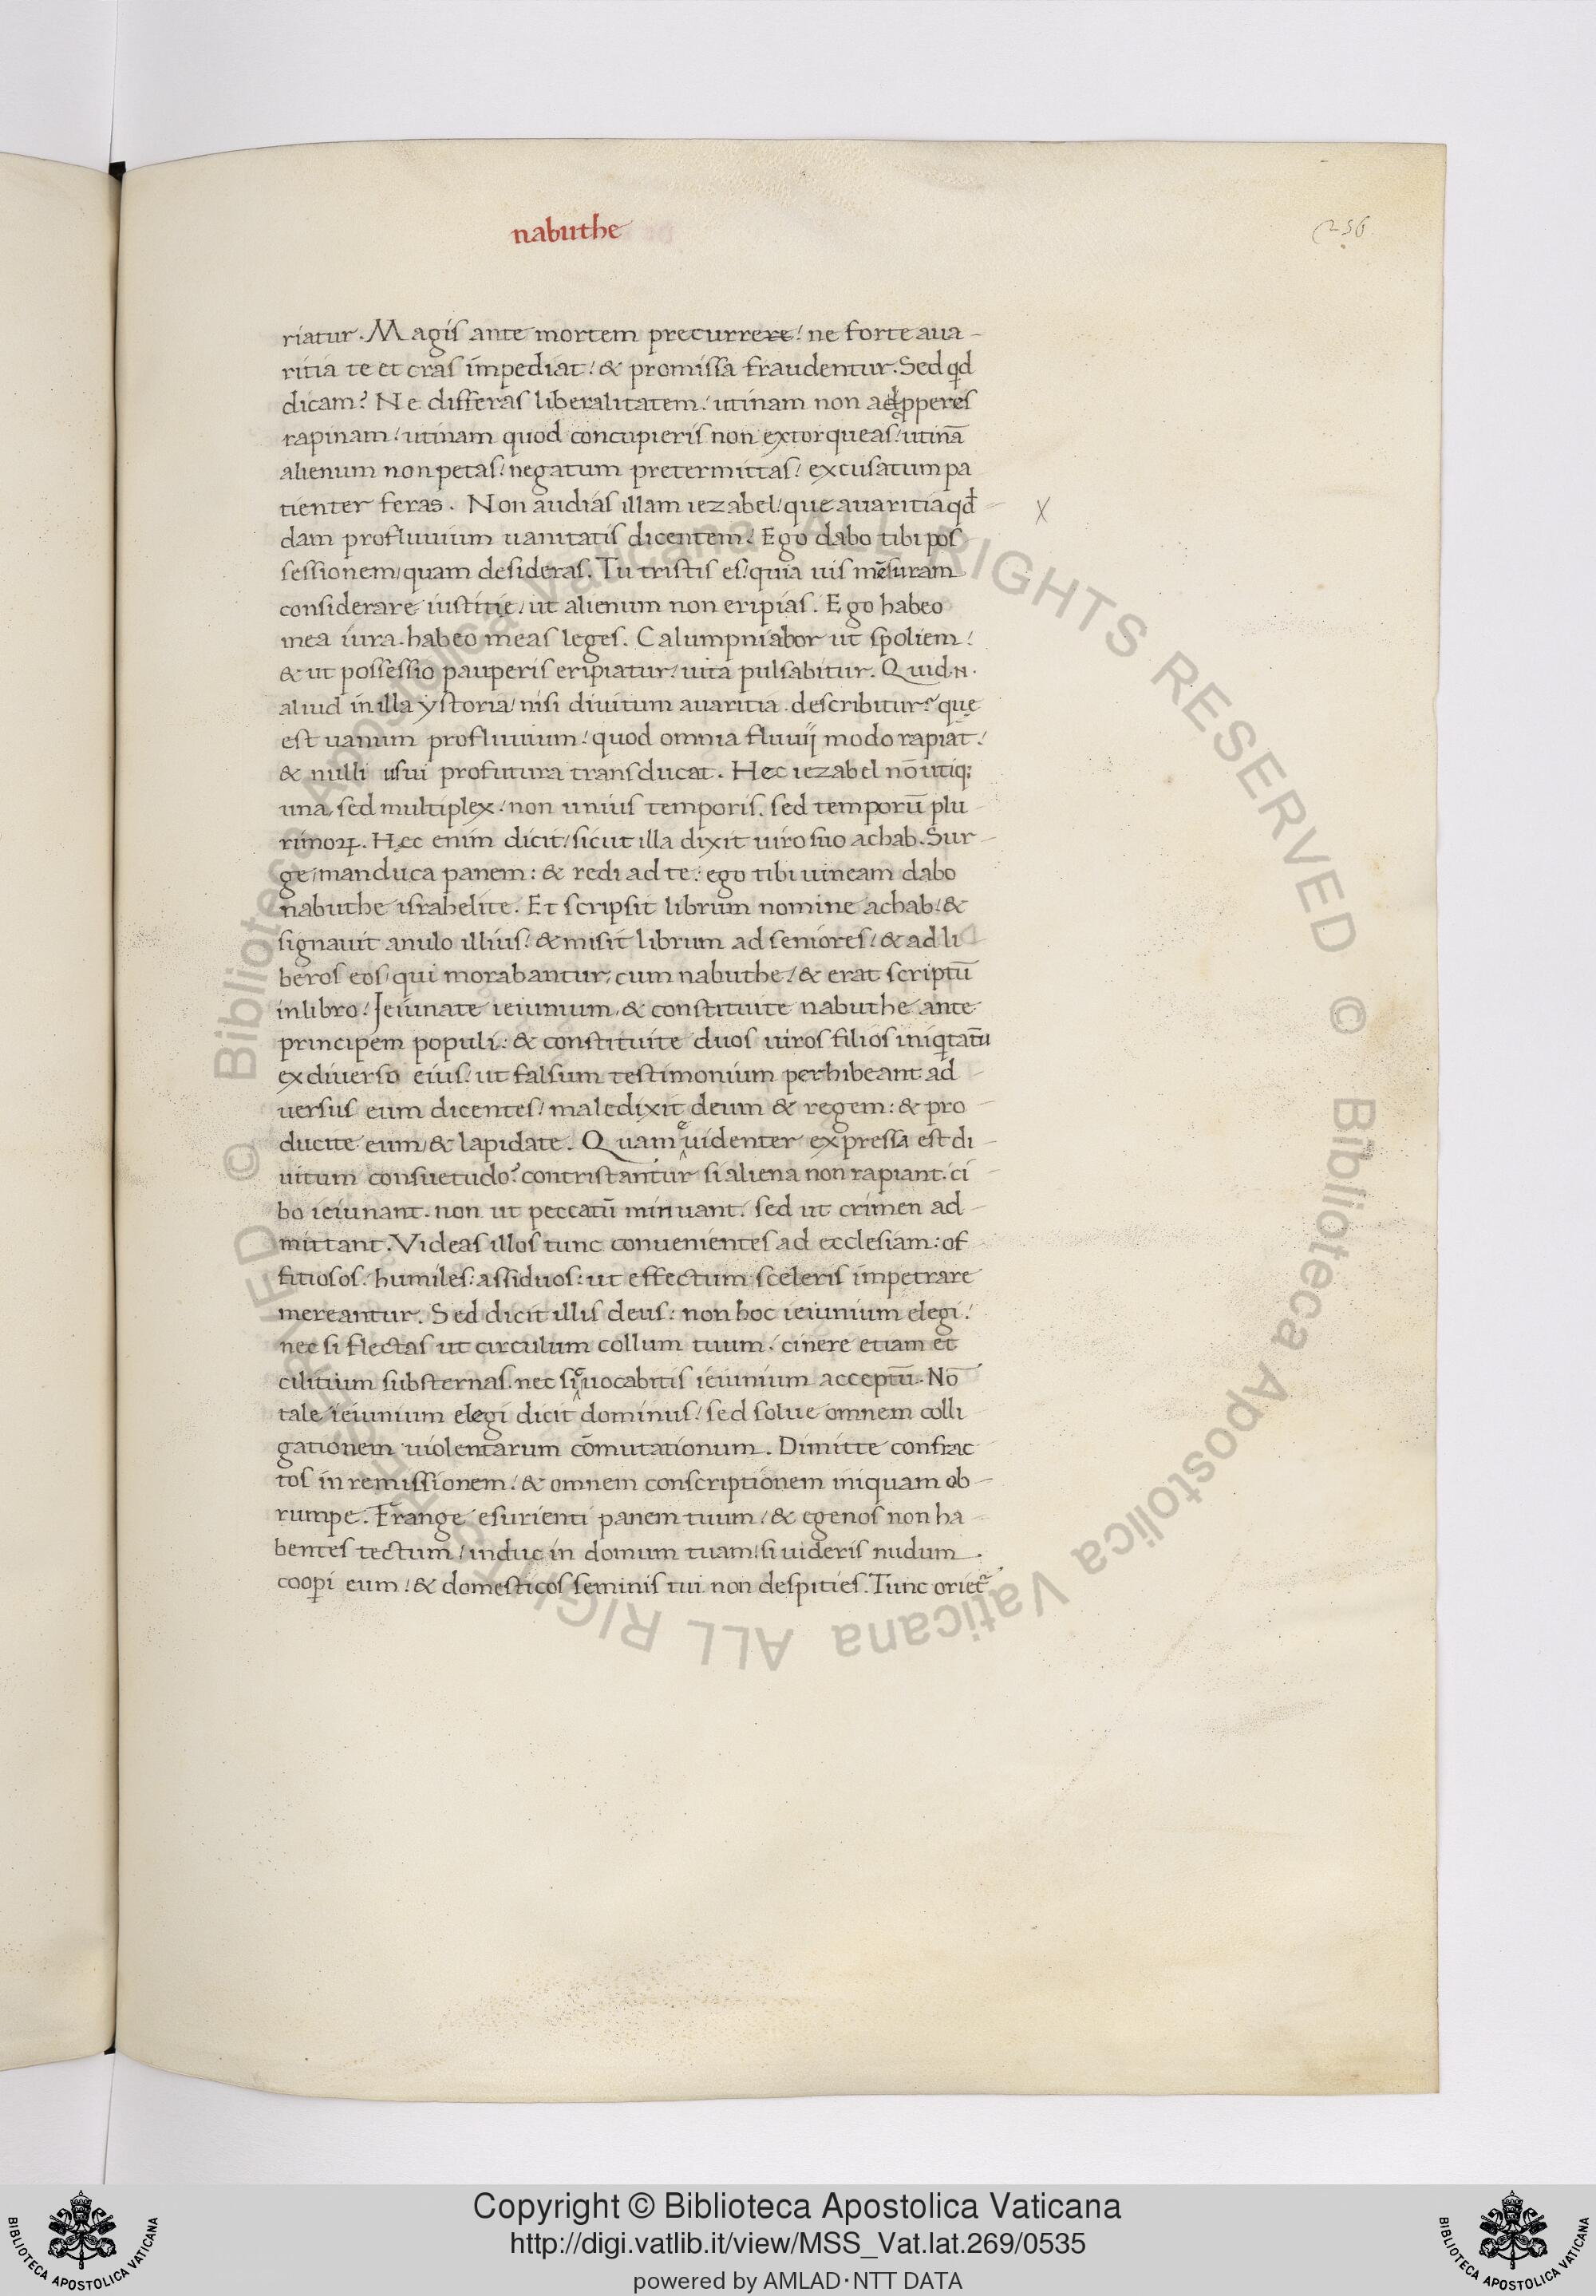 nabuthe
256
riatur. Magis ante mortem precurrere! ne forte aua-
ritia te et cras impediat! & promissa fraudentur. Sed qd
dicam? Ne differas liberalitatem! utinam non adpperes
rapinam! utinam quod concupieris non extorqueas! utinā
alienum non petas! negatum pretermittas! excusatum pa
tienter feras. Non audias illam iezabel! que auaritia qd
dam profluuium uanitatis dicentem! Ego dabo tibi pos
sessionem, quam desideras. Tu tristis es! quia uis mēsuram
considerare iustitię! ut alienum non eripias. Ego habeo
mea iura. habeo meas leges. Calumpniabor ut spoliem!
& ut possessio pauperis eripiatur! uita pulsabitur. Quid .n.
aliud in illa ystoria! nisi diuitum auaritia describitur? quę
est uanum profluuium! quod omnia fluuij modo rapiāt!
& nulli usui profutura transducat. Hec iezabel nō utiq;
una, sed multiplex! non unius temporis. sed temporū plu
rimoꝝ. Hęc enim dicit! sicut illa dixit uiro suo achab. Sur-
ge, manduca panem: & redi ad te: ego tibi uineam dabo
nabuthe israhelite. Et scripsit librum nomine achab! &
signauit anulo illius! & misit librum ad seniores! & ad li
beros eos, qui morabantur, cum nabuthe! & erat scriptū
in libro! Jeiunate ieiunium, & constituite nabuthe ante
principem populi: & constituite duos uiros filios iniqtatū
ex diuerso eius! ut falsum testimonium perhibeant ad
uersus eum dicentes! maledixit deum & regem: & pro
ducite eum, & lapidate. Quam euidenter expressa est di
uitum consuetudo? contristantur si aliena non rapiant. ci
bo ieiunant. non ut peccatū minuant. sed ut crimen ad
mittant. Videas illos tunc conuenientes ad ecclesiam: of
fitiosos: humiles: assiduos: ut effectum sceleris impetrare
mereantur. Sed dicit illis deus: non hoc ieiunium elegi!
nec si flectas ut circulum collum tuum! cinere etiam et
cilitium substernas. nec sic uocabitis ieiunium acceptū. Nō
tale ieiunium elegi dicit dominus! sed solue omnem colli
gationem uiolentarum cōmutationum. Dimitte confrac
tos in remissionem! & omnem conscriptionem iniquam ob
rumpe. Frange esurienti panem tuum! & egenos non ha
bentes tectum! induc in domum tuam! si uideris nudum
coopi eum! & domesticos seminis tui non despities. Tunc oriet̃
x
© Biblioteca Apostolica Vaticana ALL RIGHTS RESERVED © Biblioteca Apostolica Vaticana ALL RIGHTS RESERVED
Copyright © Biblioteca Apostolica Vaticana
http://digi.vatlib.it/view/MSS_Vat.lat.269/0535
powered by AMLAD·NTT DATA
BIBLIOTECA APOSTOLICA VATICANA
BIBLIOTECA APOSTOLICA VATICANA